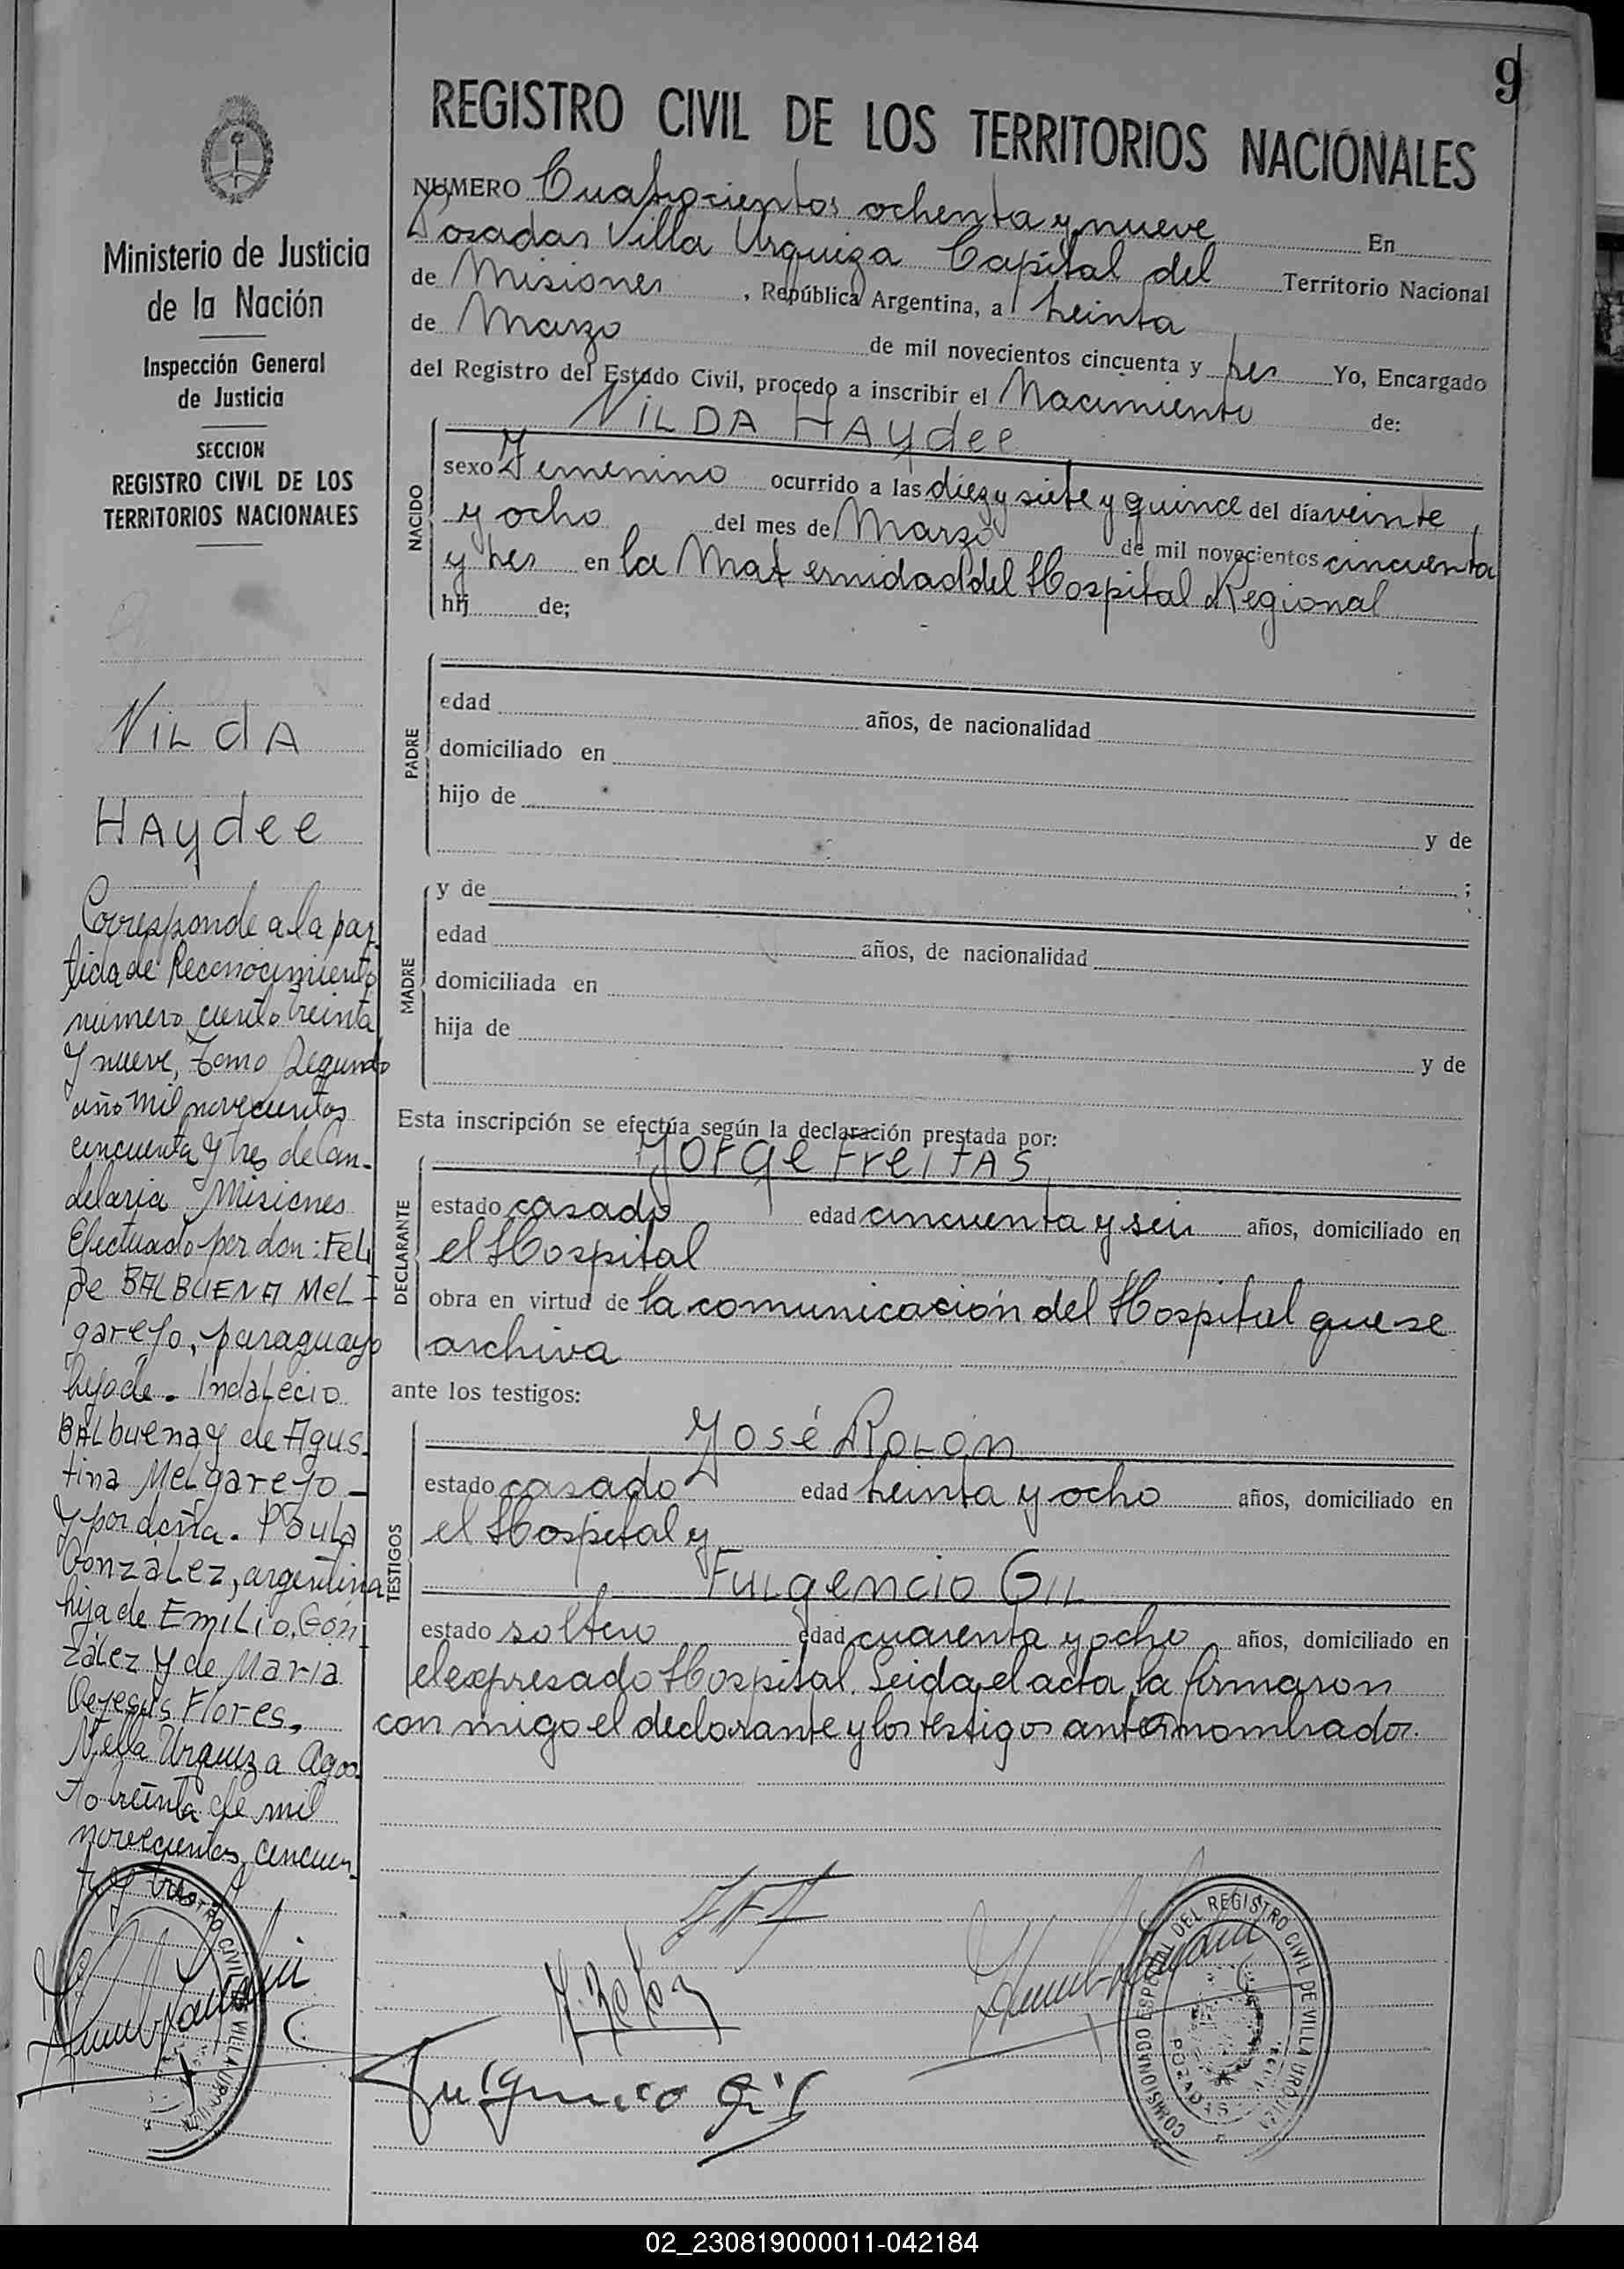 9
REGISTRO CIVIL DE LOS TERRITORIOS NACIONALES
Ministerio de Justicia
de la Nación
Inspección General
de Justicia
SECCION
REGISTRO CIVIL DE LOS
TERRITORIOS NACIONALES
NiLdA
HAydee
Corresponde a la par
tida de Reconocimiento
número ciento treinta
y nueve, Tomo Segundo
año mil novecientos
cincuenta y tres de Can-
delaria Misiones
Efectuado por don: FeLi
pe BALBUENA MeL-
garejo, paraguayo
hijo de. Indalecio
BALbuena y de Agus-
tina Melgarejo -
y por doña. Paula
González, argentina
hija de Emilio Gon
zález y de Maria
Dejesús Flores.
Villa Urquiza Agos-
to treinta de mil
novecientos cincuen-
ta y tres
NUMERO Cuatrocientos ochenta y nueve En
Posadas Villa Urquiza Capital del Territorio Nacional
de Misiones, República Argentina, a treinta
de Marzo de mil novecientos cincuenta y tres Yo, Encargado
del Registro del Estado Civil, procedo a inscribir el Nacimiento de:
NILDA HAydee
NACIDO
sexo Femenino ocurrido a las diez y siete y quince del día veinte
y ocho del mes de Marzo de mil novecientos cincuenta
y tres en la Maternidad del Hospital Regional
hij de;
PADRE
edad años, de nacionalidad
domiciliado en
hijo de
y de
;
MADRE
y de
edad años, de nacionalidad
domiciliada en
hija de
y de
Esta inscripción se efectúa según la declaración prestada por:
Jorge FreitAS
DECLARANTE
estado casado edad cincuenta y seis años, domiciliado en
el Hospital
obra en virtud de la comunicación del Hospital que se
archiva
ante los testigos:
José Rolón
TESTIGOS
estado casado edad treinta y ocho años, domiciliado en
el Hospital y
Fulgencio GIL
estado soltero edad cuarenta y ocho años, domiciliado en
el expresado Hospital. Leida el acta, la firmaron
con migo el declarante y los testigos antes nombrados.
J. Rolon
Fulgencio Gil
COMISIONADO ESPECIAL DEL REGISTRO CIVIL DE VILLA URQUIZA
POSADAS
02_230819000011-042184